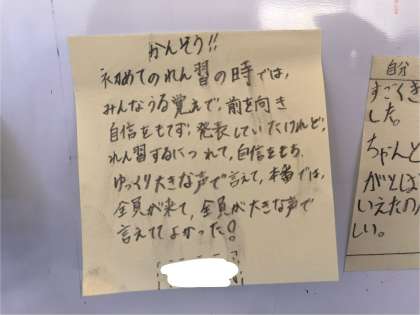 かんそう!!
初めてのれん習の時では、
みんなうる覚えで、前を向き
自信をもてず、発表していたけれど、
れん習するにつれて、自信をもち、
ゆっくり大きな声で言えて、本番では、
全員が来て、全員が大きな声で
言えてよかった!
自分
すごくき
した。
ちゃんと
がとぼ
いえたの
しい。